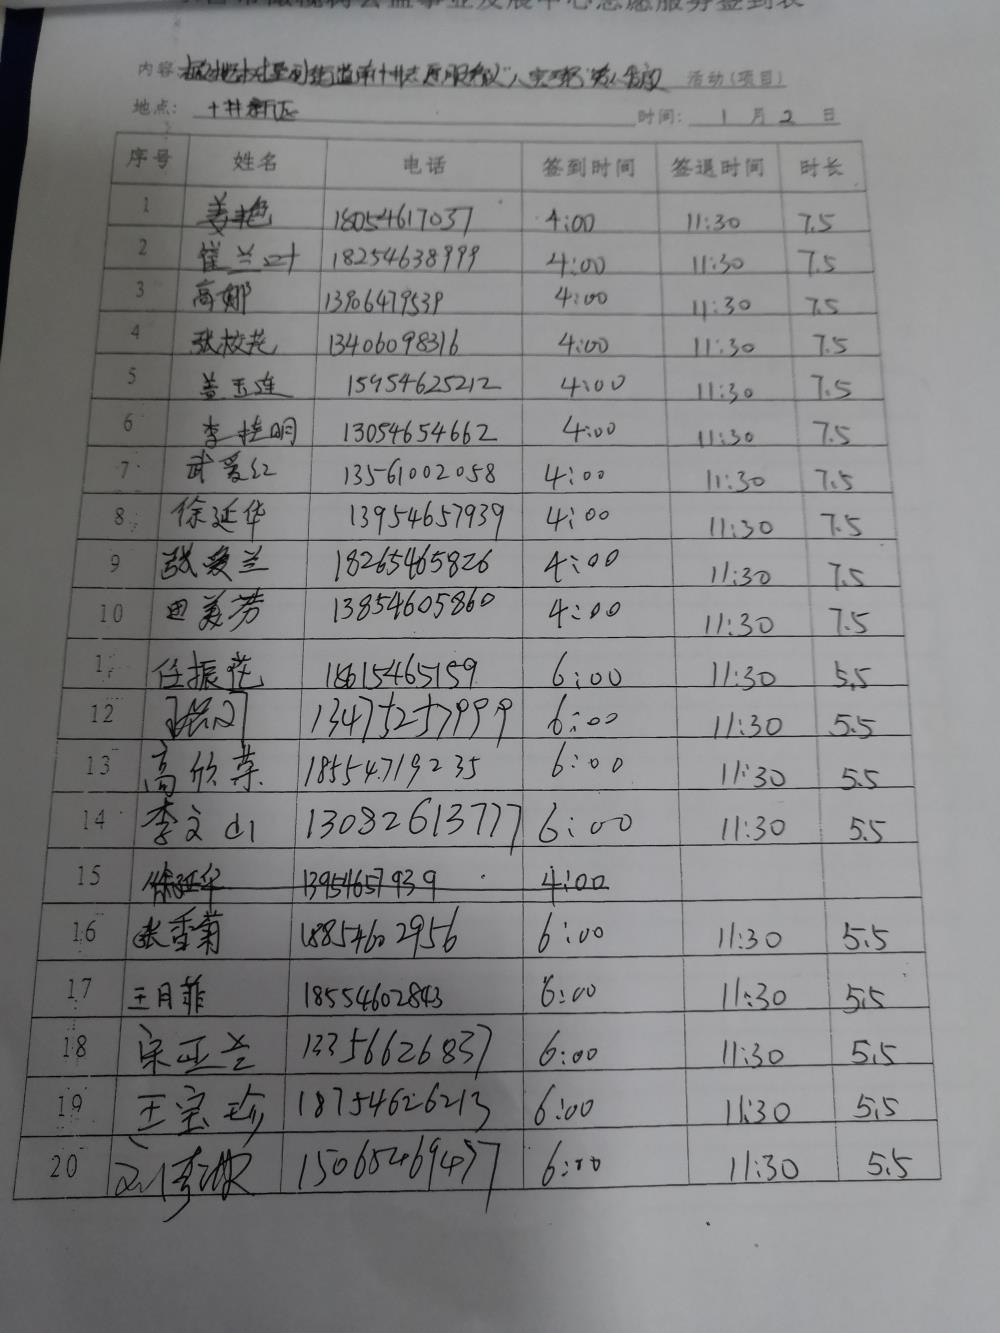 志愿服务签到表
内容: 活动(项目)
地点: 十井新区 时间: 1 月 2 日
序号 姓名 电话 签到时间 签退时间 时长
1 姜艳 18054617037 4:00 11:30 7.5
2 崔兰叶 18254638999 4:00 11:30 7.5
3 高娜 13906479539 4:00 11:30 7.5
4 张校花 13406098316 4:00 11:30 7.5
5 姜玉连 15954625212 4:00 11:30 7.5
6 李桂明 13054654662 4:00 11:30 7.5
7 武爱红 13561002058 4:00 11:30 7.5
8 徐延华 13954657939 4:00 11:30 7.5
9 张爱兰 18265465826 4:00 11:30 7.5
10 田美芳 13854605860 4:00 11:30 7.5
1 任振花 18615465159 6:00 11:30 5.5
12 13475257999 6:00 11:30 5.5
13 高欣荣 18554719235 6:00 11:30 5.5
14 李文山 13082613777 6:00 11:30 5.5
15 徐延华 13954657939 4:00
16 张香菊 18854602956 6:00 11:30 5.5
17 王月菲 18554602843 6:00 11:30 5.5
18 宋亚兰 13356626837 6:00 11:30 5.5
19 王宝珍 18754626213 6:00 11:30 5.5
20 15065469497 6:00 11:30 5.5